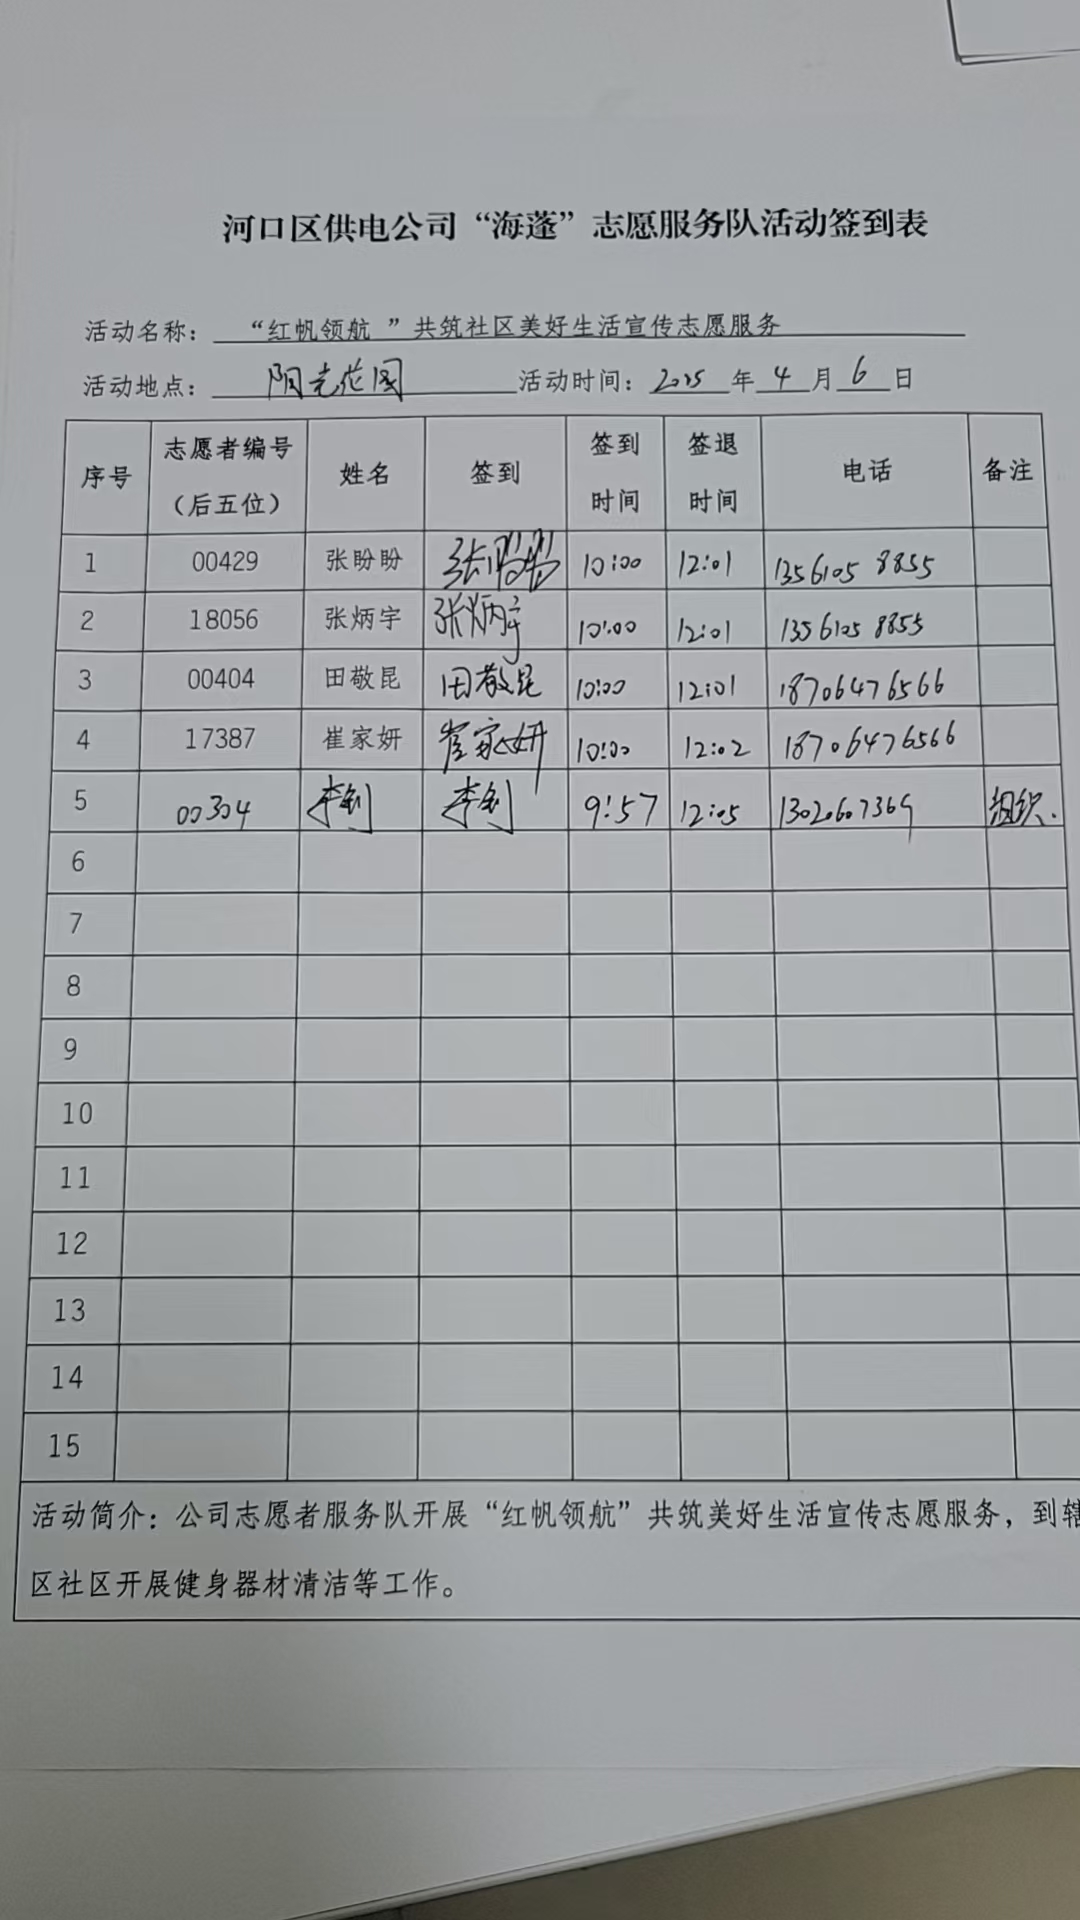 河口区供电公司“海蓬”志愿服务队活动签到表
活动名称： “红帆领航 ”共筑社区美好生活宣传志愿服务
活动地点： 阳光花园 活动时间： 2025 年 4 月 6 日
序号 志愿者编号（后五位） 姓名 签到 签到时间 签退时间 电话 备注
1 00429 张盼盼 张盼盼 10:00 12:01 13561058855
2 18056 张炳宇 张炳宇 10:00 12:01 13561058855
3 00404 田敬昆 田敬昆 10:00 12:01 18706476566
4 17387 崔家妍 崔家妍 10:00 12:02 18706476566
5 00304 李钊 李钊 9:57 12:05 13020607369 组织.
6
7
8
9
10
11
12
13
14
15
活动简介：公司志愿者服务队开展“红帆领航”共筑美好生活宣传志愿服务，到辖
区社区开展健身器材清洁等工作。